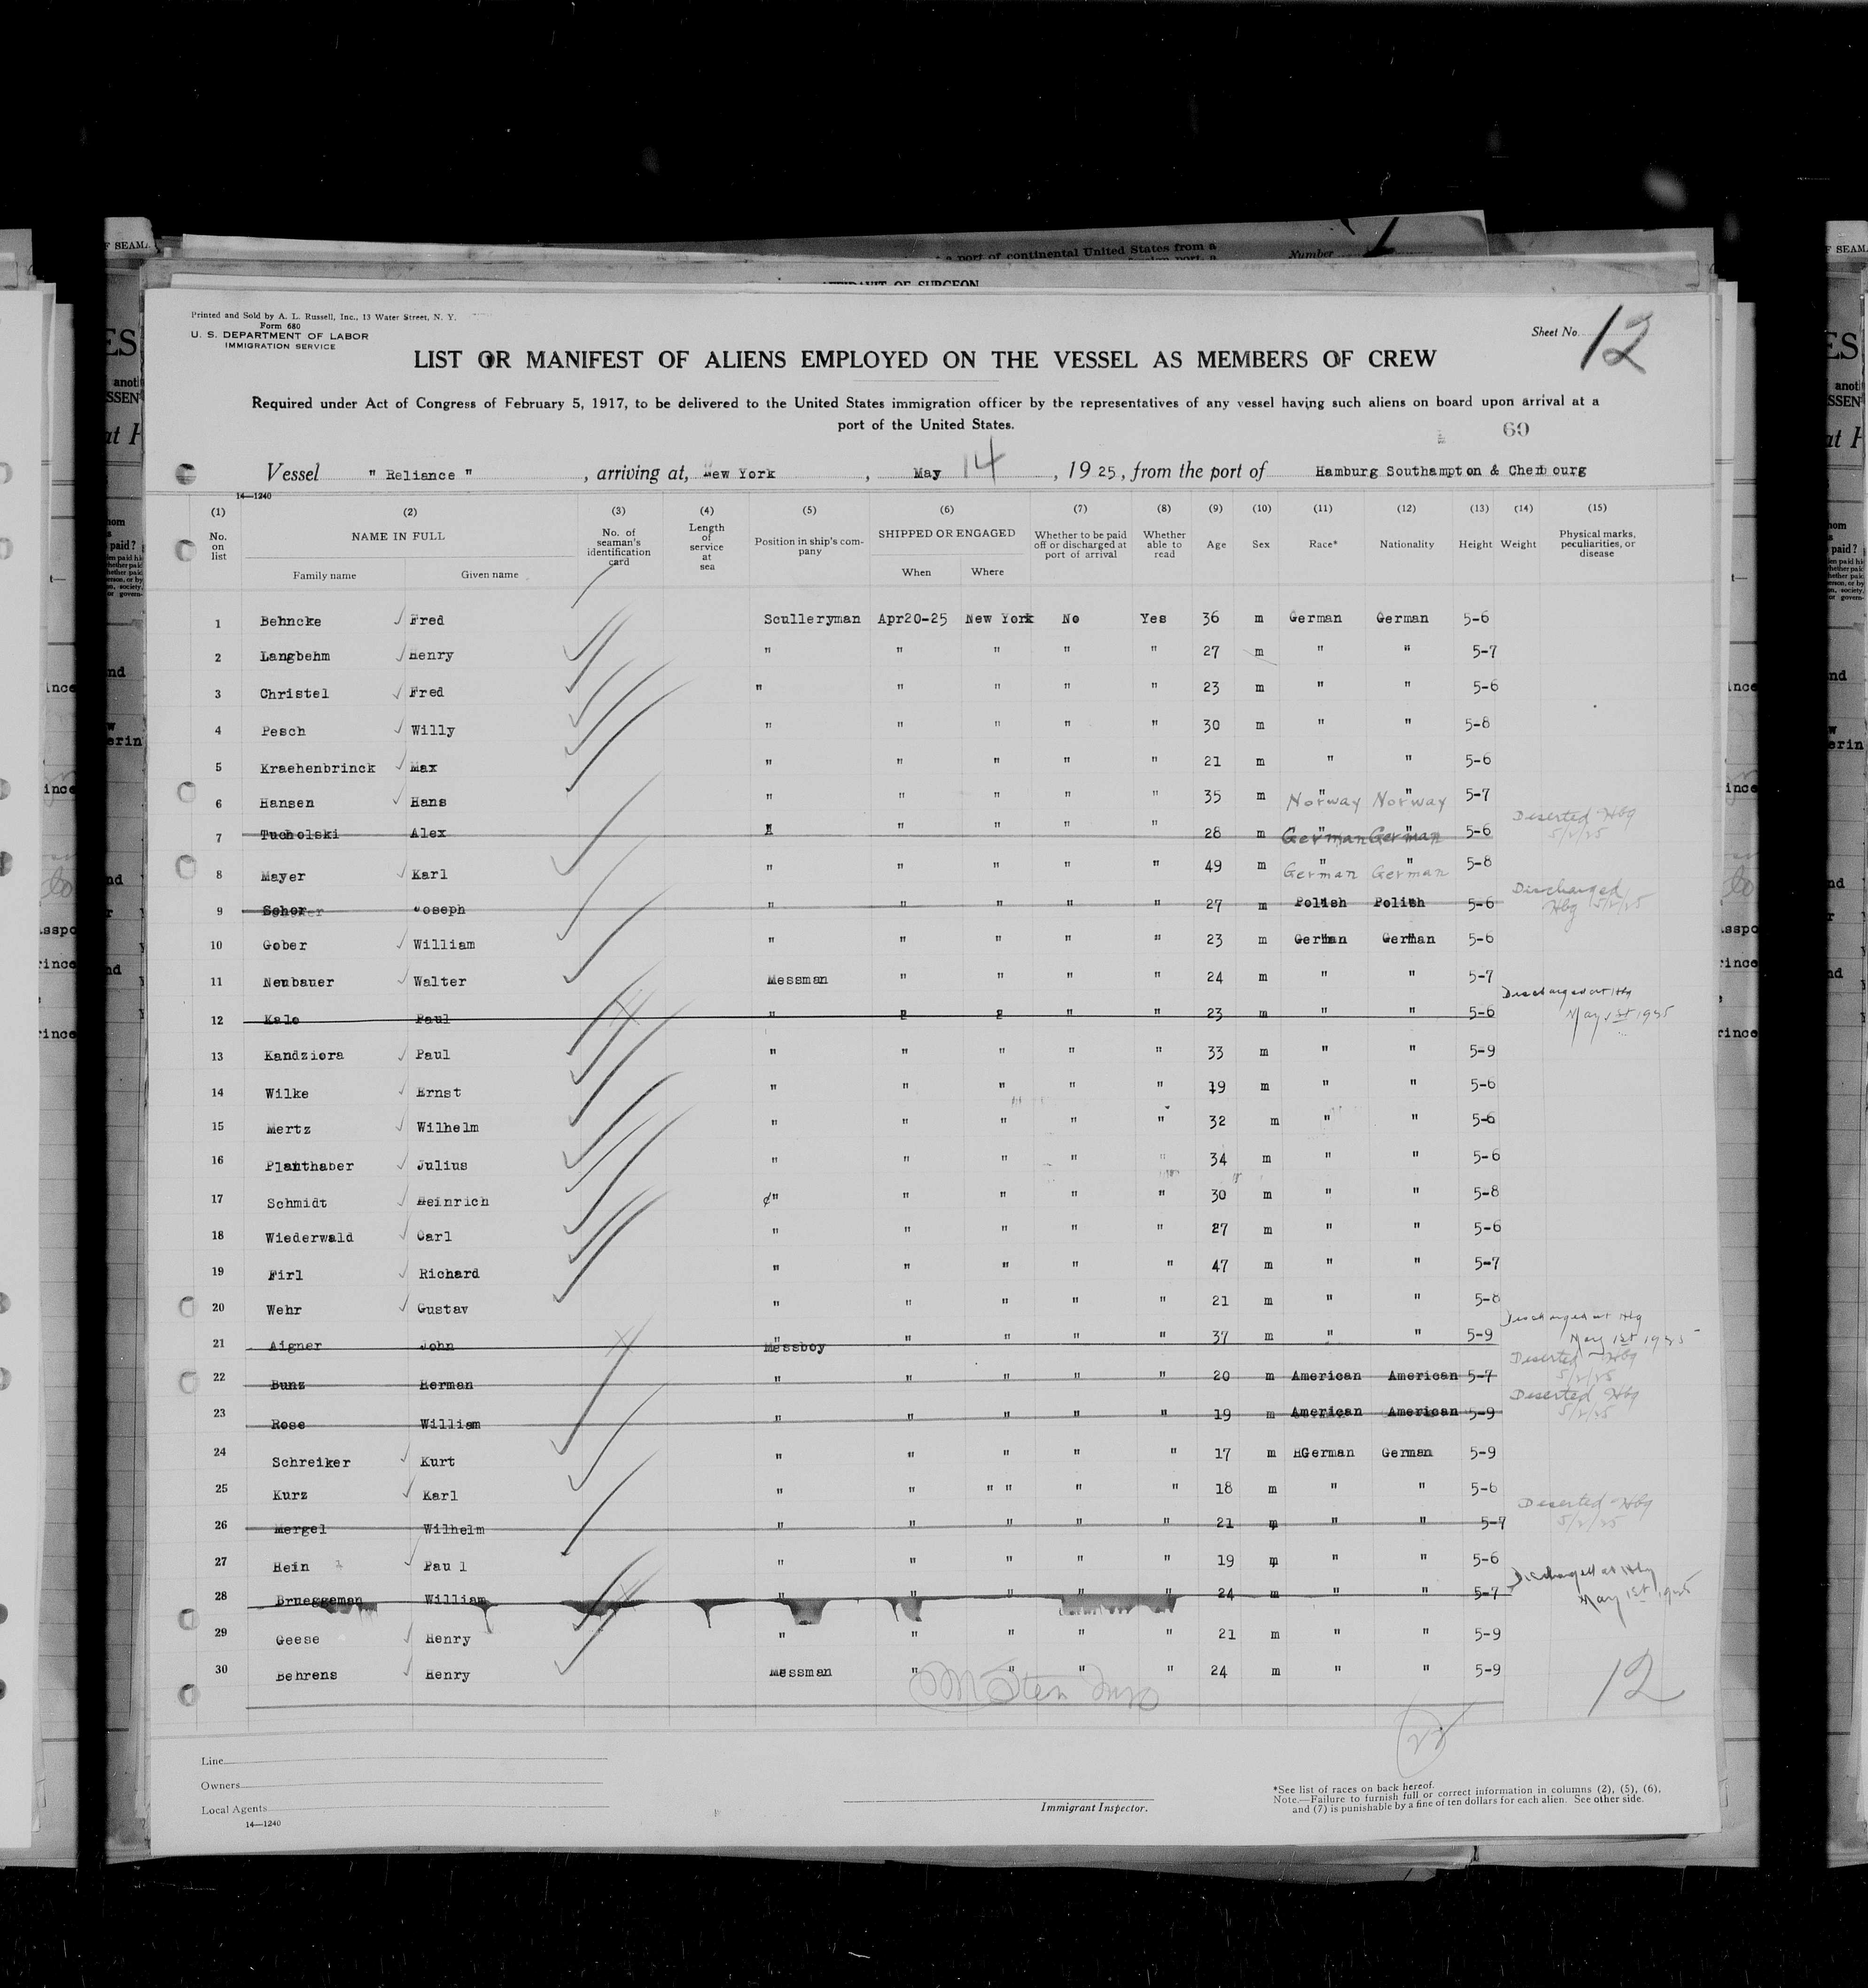 a port of continental United States from a
Number
AFFIDAVIT OF SURGEON
Printed and Sold by A. L. Russell, Inc., 13 Water Street, N. Y.
Form 680
U. S. DEPARTMENT OF LABOR
IMMIGRATION SERVICE
Sheet No. 12
LIST OR MANIFEST OF ALIENS EMPLOYED ON THE VESSEL AS MEMBERS OF CREW
Required under Act of Congress of February 5, 1917, to be delivered to the United States immigration officer by the representatives of any vessel having such aliens on board upon arrival at a
port of the United States.
60
Vessel " Reliance " , arriving at, New York , May 14 , 19 25, from the port of Hamburg Southampton & Cherbourg
14—1240
(1) (2) (3) (4) (5) (6) (7) (8) (9) (10) (11) (12) (13) (14) (15)
No. on list NAME IN FULL Family name Given name No. of seaman's identification card Length of service at sea Position in ship's company SHIPPED OR ENGAGED When Where Whether to be paid off or discharged at port of arrival Whether able to read Age Sex Race* Nationality Height Weight Physical marks, peculiarities, or disease
1 Behncke Fred Sculleryman Apr20-25 New York No Yes 36 m German German 5-6
2 Langbehm Henry " " " " " 27 m " " 5-7
3 Christel Fred " " " " " 23 m " " 5-6
4 Pesch Willy " " " " " 30 m " " 5-8
5 Kraehenbrinck Max " " " " " 21 m " " 5-6
6 Hansen Hans " " " " " 35 m Norway Norway 5-7
7 Tucholski Alex " " " " " 28 m German German 5-6 Deserted Hbg 5/2/25
8 Mayer Karl " " " " " 49 m German German 5-8
9 Joseph " " " " " 27 m Polish Polish 5-6 Discharged Hbg 5/2/25
10 Gober William " " " " " 23 m German German 5-6
11 Neubauer Walter Messman " " " " 24 m " " 5-7
12 Kalo Paul " " " " " 23 m " " 5-6 Discharged at Hbg May 1st 1925
13 Kandziora Paul " " " " " 33 m " " 5-9
14 Wilke Ernst " " " " " 19 m " " 5-6
15 Mertz Wilhelm " " " " " 32 m " " 5-6
16 Planthaber Julius " " " " " 34 m " " 5-6
17 Schmidt Heinrich " " " " " 30 m " " 5-8
18 Wiederwald Carl " " " " " 27 m " " 5-6
19 Firl Richard " " " " " 47 m " " 5-7
20 Wehr Gustav " " " " " 21 m " " 5-8
21 Aigner John Messboy " " " " 37 m " " 5-9 Discharged at Hbg May 1st 1925
22 Bunz Herman " " " " " 20 m American American 5-7 Deserted Hbg 5/2/25
23 Rose William " " " " " 19 m American American 5-9 Deserted Hbg 5/2/25
24 Schreiker Kurt " " " " " 17 m German German 5-9
25 Kurz Karl " " " " " " 18 m " " 5-6
26 Mergel Wilhelm " " " " " 21 m " " 5-7 Deserted Hbg 5/2/25
27 Hein Pau l " " " " " 19 m " " 5-6
28 Brueggeman William " " " " " 24 m " " 5-7 Discharged at Hbg May 1st 1925
29 Geese Henry " " " " " 21 m " " 5-9
30 Behrens Henry Messman " " " " 24 m " " 5-9
12
Line
Owners
Local Agents
14—1240
Immigrant Inspector.
*See list of races on back hereof.
Note.—Failure to furnish full or correct information in columns (2), (5), (6),
and (7) is punishable by a fine of ten dollars for each alien. See other side.